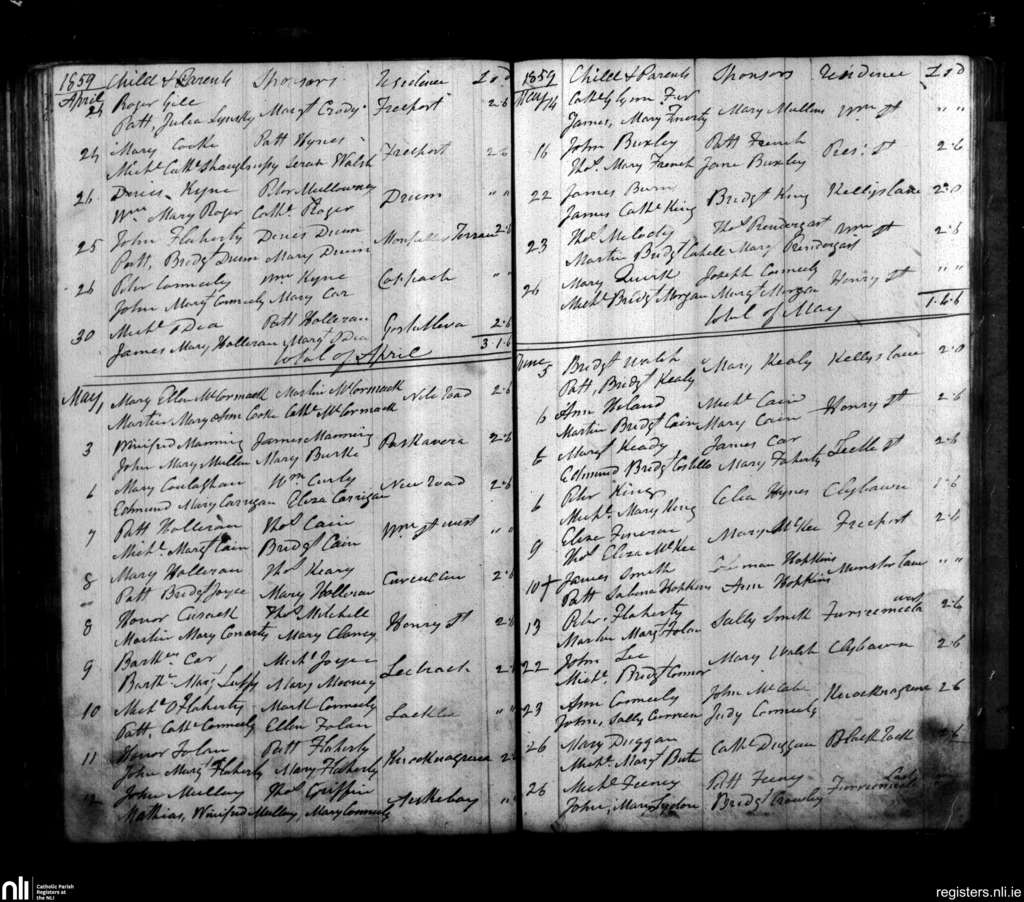 1859 Child & Parents Sponsors Residence £ s d
April
24 Roger Gill
Patt, Julia Lynsky Margt Crody Freeport 2.6
24 Mary Cooke Patt Hynes
Michl Cathe Shaughnessy Walsh Freeport 2.6
26 Denis Kyne Peter Mullowney
Wm Mary Roger Cathe Roger Drum " "
25 John Flaherty Denis Drum
Patt, Bridgt Drum Mary Drum Terrace 2.6
26 Peter Conneely Wm Kyne
John Margt Conneely Mary Car Cappach " "
30 Michl O'Dea Patt Holleran
James Mary Holleran Margt O'Dea 2.6
Total of April 3.1.6
May 1 Mary Ellen McCormack Martin McCormack
Martin, Mary Ann Cooke Cathe McCormack Nile road 2.6
3 Winifred Manning James Manning
John Mary Mullen Mary Burke Parkavera 2.6
6 Mary Coulaghan Wm Curly
Edmund Mary Carrigan Eliza Carrigan New road 2.6
7 Patt Holleran Thos Cain
Michl Margt Cain Bridgt Cain Wm St west " "
8 Mary Holleran Thos Keary
" Patt Bridgt Joyce Mary Holleran 2.6
8 Honor Cusack Thos Mitchell
Martin Mary Conarty Mary Clancy Henry St 2.6
9 Car Michl Joyce
Barthw Margt Mary Mooney Letrach
10 Michl O'Flaherty Mark Conneely
Patt, Cathe Conneely Ellen Folan Lacklea " "
11 Honor Folan Patt Flaherty
John Margt Flaherty Mary Flaherty Knocknagreena
12 John Mulloy Thos Griffin
Mathias, Winifred Mulloy, Mary Conneely "
1859 Child & Parents Sponsors Residence £ s d
May 14
James, Mary Mary Mullens Wm St " "
16 John Buxley Patt French
Thos Mary French Jane Buxley Pres: St 2.6
22 James Burn
James Cathe King Bridgt King Kellys Lane 2.0
23 Thos Melody Thos Prendergast
Martin Bridgt Cahill Mary Prendergast Wm St 2.6
26 Mary Quirk Joseph Conneely
Michl Bridgt Morgan Margt Morgan Henry St " "
Total of May 1.6.6
June
5 Bridgt Walsh
Patt, Bridgt Kealy Mary Kealy Kellys Lane 2.0
6 Ann Michl Cain
Martin Bridgt Cain Mary Cain Henry St 2.6
6 Margt Keady James Car
Edmund Bridgt Costello Mary Faherty St 2.6
6 Peter King
Michl Mary King Celia Hynes Clybawn 1.6
9 Eliza
Thos Eliza McKee Mary McKee Freeport 2.6
10 + James Smith Hopkins
Patt Sabina Hopkins Ann Hopkins Munster Lane " "
13 Peter Flaherty
Martin Margt Folan Sally Smith 2.6
22 John Lee
Michl Bridgt Connor Mary Walsh Clybawn 2.6
23 Ann Conneely John McCabe
John, Sally Judy Conneely Knocknagreena 2.6
26 Mary Duggan
Michl Margt Cathe Duggan Black rock 2.6
26 Michl Feeney Patt Feeny
John, Mary Bridgt Crowley
nli
Catholic Parish
Registers at
the NLI
registers.nli.ie